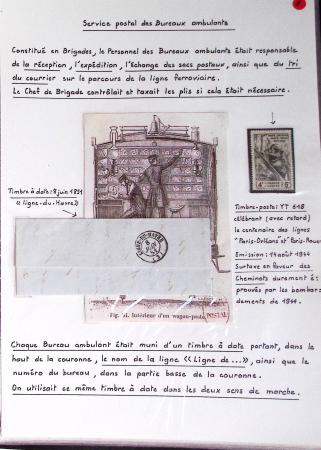 Service postal des Bureaux ambulants
Constitué en Brigades, le Personnel des Bureaux ambulants était responsable
de la réception, l'expédition, l'échange des sacs postaux, ainsi que du tri
du courrier sur le parcours de la ligne ferroviaire.
Le Chef de Brigade contrôlait et taxait les plis si cela était nécessaire.
Timbre à date: 8 juin 1851
« ligne-du-Havre »
Timbre-poste: YT 618
célébrant (avec retard)
le centenaire des lignes
"Paris-Orléans" et "Paris-Rouen"
Emission: 14 août 1944
Surtaxe en faveur des
Cheminots durement é-
prouvés par les bombar-
dements de 1944.
Intérieur d'un wagon-poste
POSTAL
Chaque Bureau ambulant était muni d'un timbre à date portant, dans le
haut de la couronne, le nom de la ligne «Ligne de...», ainsi que le
numéro du bureau, dans la partie basse de la couronne.
On utilisait ce même timbre à date dans les deux sens de marche.